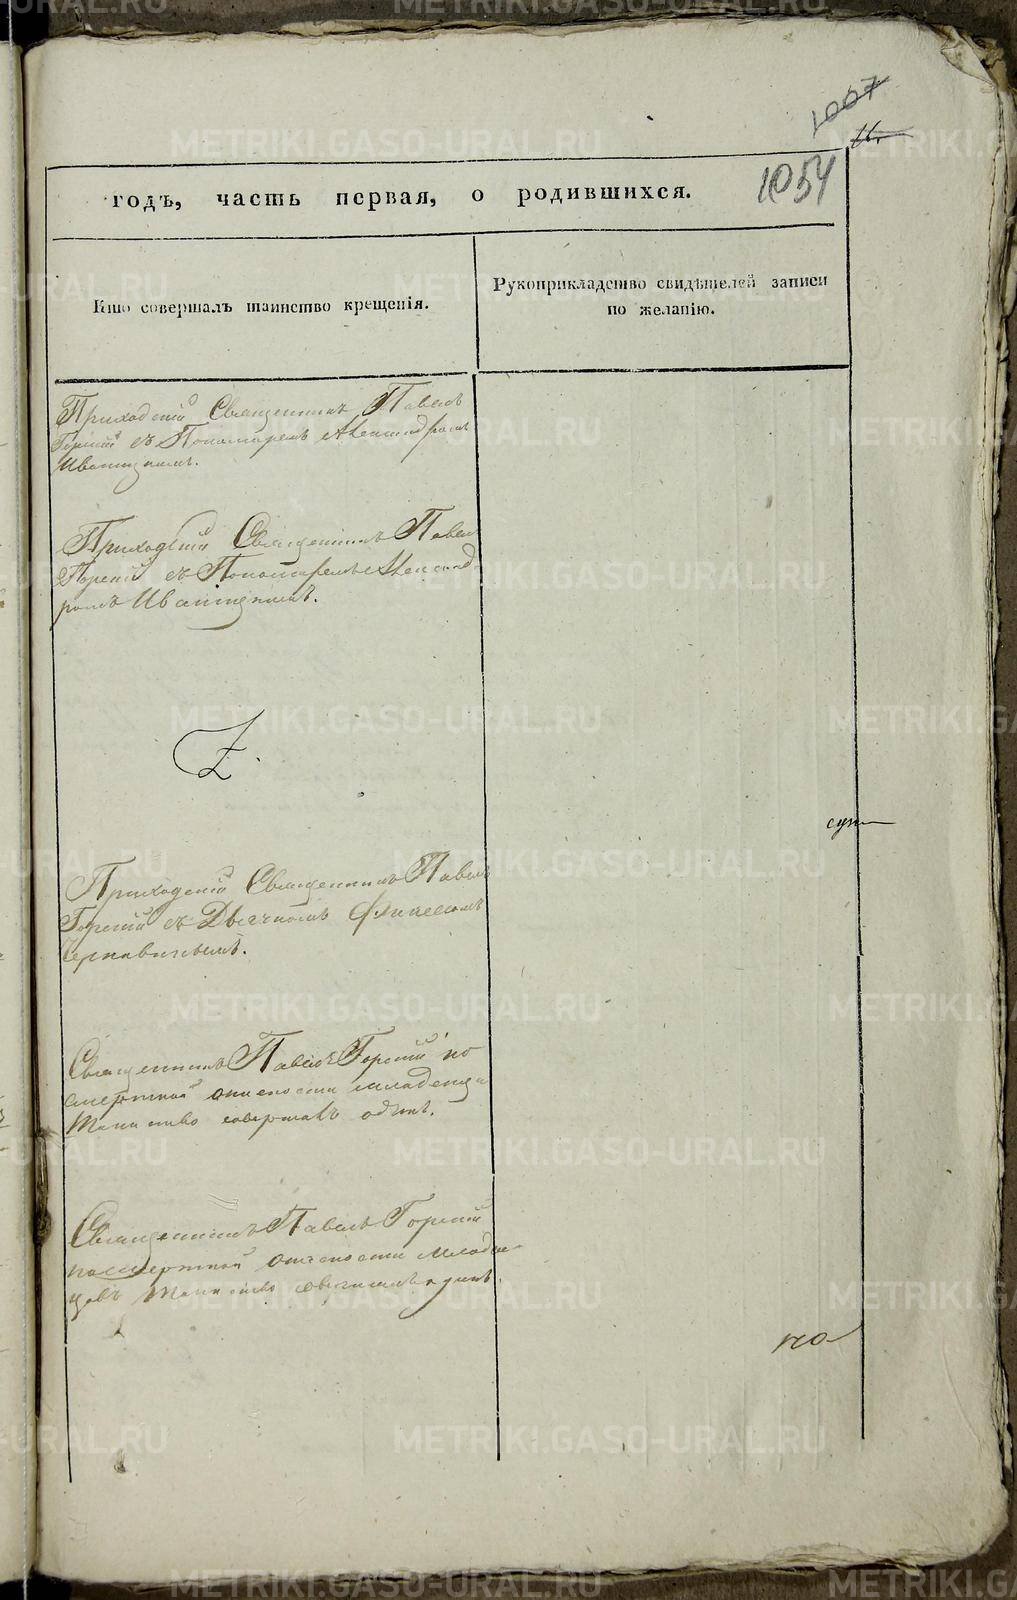 1007
16.
1054
годъ, часть первая, о родившихся.
Кто совершалъ таинство крещенія.
Рукоприкладство свидѣтелей записи
по желанію.
Приходскій Священникъ Павелъ
Горскій съ Пономаремъ Александромъ
Иваницкимъ.
Приходскій Священникъ Павелъ
Горскій съ Пономаремъ Александ
ромъ Иваницкимъ.
Приходскій Священникъ Павелъ
Горскій съ Дьячкомъ
Священникъ Павелъ Горскій по
смертной опасности младенца
таинство совершалъ одинъ.
Священникъ Павелъ Горскій
по смертной опасности младен
цевъ таинство одинъ.
METRIKI.GASO-URAL.RU